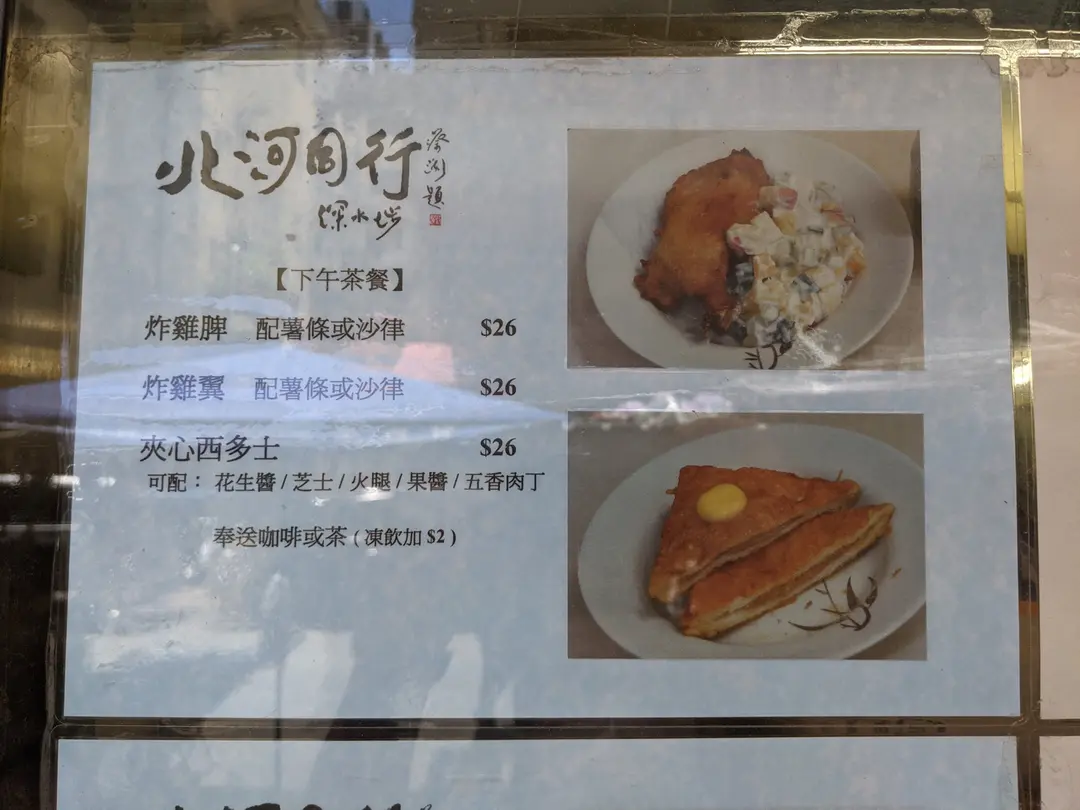 北河同行
蔡瀾題
深水埗
【下午茶餐】
炸雞脾 配薯條或沙律 $26
炸雞翼 配薯條或沙律 $26
夾心西多士 $26
可配： 花生醬 / 芝士 / 火腿 / 果醬 / 五香肉丁
奉送咖啡或茶 ( 凍飲加 $2 )